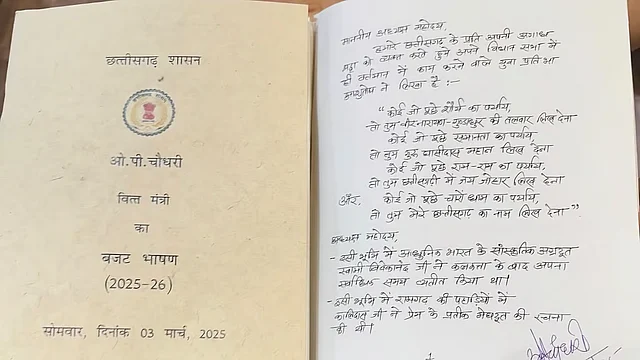 छत्तीसगढ़ शासन
ओ.पी.चौधरी
वित्त मंत्री
का
बजट भाषण
(2025-26)
सोमवार, दिनांक 03 मार्च, 2025
माननीय अध्यक्ष महोदय,
हमारे छत्तीसगढ़ के प्रति अपनी अगाध
श्रद्धा को व्यक्त करते हुये अपने विधान सभा में
ही वर्तमान में काम करने वाले युवा प्रतिभा
ने लिखा है :-
"कोई जो पूछे शौर्य का पर्याय,
तो तुम वीरनारायण-गुण्डाधुर की तलवार लिख देना
कोई जो पूछे समानता का पर्याय,
तो तुम गुरु घासीदास महान लिख देना
कोई जो पूछे राम-राम का पर्याय,
तो तुम छत्तीसगढ़ी में जय जोहार लिख देना
और, कोई जो पूछे चारों धाम का पर्याय,
तो तुम मेरे छत्तीसगढ़ का नाम लिख देना"
अध्यक्ष महोदय,
- इसी भूमि में आधुनिक भारत के सांस्कृतिक अग्रदूत
स्वामी विवेकानंद जी ने कलकत्ता के बाद अपना
सर्वाधिक समय व्यतीत किया था।
- इसी भूमि में रामगढ़ की पहाड़ियों में
कालिदास जी ने प्रेम के प्रतीक मेघदूत की रचना
की थी।